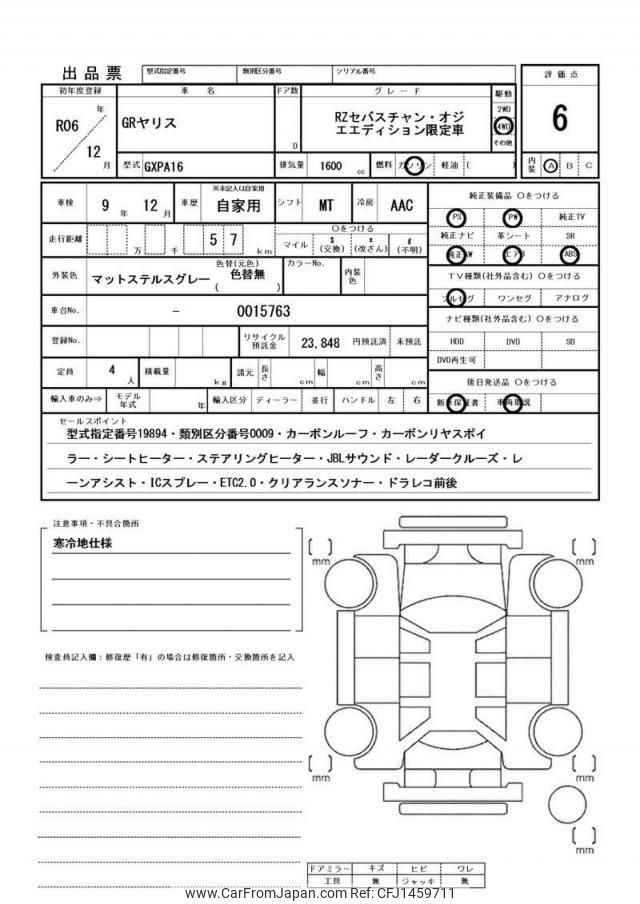 出品票 型式指定番号 類別区分番号 シリアル番号 評価点
初年度登録 車名 ドア数 グレード 駆動
R06 年 12 月 GRヤリス D RZセバスチャン・オジ
エエディション限定車
2WD 4WD その他 6
型式 GXPA16 排気量 1600 cc 燃料 ガソリン 軽油 ( ) 内装 A B C
車検 9 年 12 月 車歴 ※未記入は自家用 自家用 シフト MT 冷房 AAC 純正装備品 ○をつける
PS PW 純正TV
走行距離 万 千 5 7 km ○をつける
マイル $(交換) x(改ざん) #(不明)
純正ナビ 革シート SR
純正AW エアB ABS
外装色 マットステルスグレー 色替(元色) 色替無 ( ) カラーNo. 内装色
TV種類(社外品含む) ○をつける
フルセグ ワンセグ アナログ
車台No. － 0015763
ナビ種類(社外品含む) ○をつける
登録No. リサイクル預託金 23,848 円預託済 未預託
HDD DVD SD
DVD再生可
定員 4 人 積載量 kg 諸元 長さ cm 幅 cm 高さ cm
後日発送品 ○をつける
輸入車のみ⇒ モデル年式 年 輸入区分 ディーラー 並行 ハンドル 左 右
新車保証書 車両取説
セールスポイント
型式指定番号19894・類別区分番号0009・カーボンルーフ・カーボンリヤスポイ
ラー・シートヒーター・ステアリングヒーター・JBLサウンド・レーダークルーズ・レ
ーンアシスト・ICスプレー・ETC2.0・クリアランスソナー・ドラレコ前後
注意事項・不具合箇所
寒冷地仕様
検査員記入欄：修復歴「有」の場合は修復箇所・交換箇所を記入
[ ] mm [ ] mm
[ ] mm [ ] mm
[ ] mm
ドアミラー キズ ヒビ ワレ
工具 無 ジャッキ 無
www.CarFromJapan.com CFJ1459711